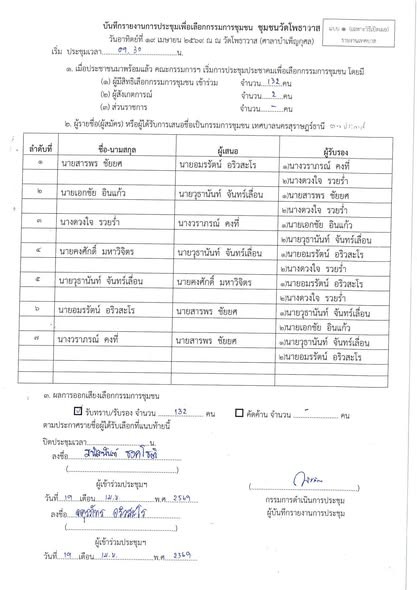 บันทึกรายงานการประชุมเพื่อเลือกกรรมการชุมชน ชุมชนวัดโพธาวาส
แบบ ๑
รายงานผลคบส
วันอาทิตย์ที่ ๑๙ เมษายน ๒๕๖๙ ณ ณ วัดโพธาวาส (ศาลาบำเพ็ญกุศล)
เริ่ม ประชุมเวลา 09.30 น.
๑. เมื่อประชาชนมาพร้อมแล้ว คณะกรรมการฯ เริ่มการประชุมประชาคมเพื่อเลือกกรรมการชุมชน โดยมี
(๑) ผู้มีสิทธิเลือกกรรมการชุมชน เข้าร่วม จำนวน 132 คน
(๒) ผู้สังเกตการณ์ จำนวน 2 คน
(๓) ส่วนราชการ จำนวน - คน
๒. ผู้รายชื่อ(ผู้สมัคร) หรือผู้ได้รับการเสนอชื่อเป็นกรรมการชุมชน เทศบาลนครสุราษฎร์ธานี
ลำดับที่ ชื่อ-นามสกุล ผู้เสนอ ผู้รับรอง
๑ นายสารพร ชัยยศ นายอมรรัตน์ อริวสะโร ๑)นางวราภรณ์ คงที่
๒)นางดวงใจ รวยร่ำ
๒ นายเอกชัย อินแก้ว นายวุธานันท์ จันทร์เลื่อน ๑)นายสารพร ชัยยศ
๒)นางดวงใจ รวยร่ำ
๓ นางดวงใจ รวยร่ำ นางวราภรณ์ คงที่ ๑)นายเอกชัย อินแก้ว
๒)นายวุธานันท์ จันทร์เลื่อน
๔ นายคงศักดิ์ มหาวิจิตร นายวุธานันท์ จันทร์เลื่อน ๑)นายอมรรัตน์ อริวสะโร
๒)นางดวงใจ รวยร่ำ
๕ นายวุธานันท์ จันทร์เลื่อน นายคงศักดิ์ มหาวิจิตร ๑)นายอมรรัตน์ อริวสะโร
๒)นางดวงใจ รวยร่ำ
๖ นายอมรรัตน์ อริวสะโร นายสารพร ชัยยศ ๑)นายวุธานันท์ จันทร์เลื่อน
๒)นายเอกชัย อินแก้ว
๗ นางวราภรณ์ คงที่ นายสารพร ชัยยศ ๑)นายวุธานันท์ จันทร์เลื่อน
๒)นายอมรรัตน์ อริวสะโร
๓. ผลการออกเสียงเลือกกรรมการชุมชน
รับทราบ/รับรอง จำนวน 132 คน คัดค้าน จำนวน - คน
ตามประกาศรายชื่อผู้ได้รับเลือกที่แนบท้ายนี้
ปิดประชุมเวลา น.
ลงชื่อ
ผู้เข้าร่วมประชุมฯ
วันที่ 19 เดือน เม.ย. พ.ศ 2569
กรรมการดำเนินการประชุม
ลงชื่อ อมรรัตน์ อริวสะโร
ผู้บันทึกรายงานการประชุม
ผู้เข้าร่วมประชุมฯ
วันที่ 19 เดือน เม.ย. พ.ศ 2569